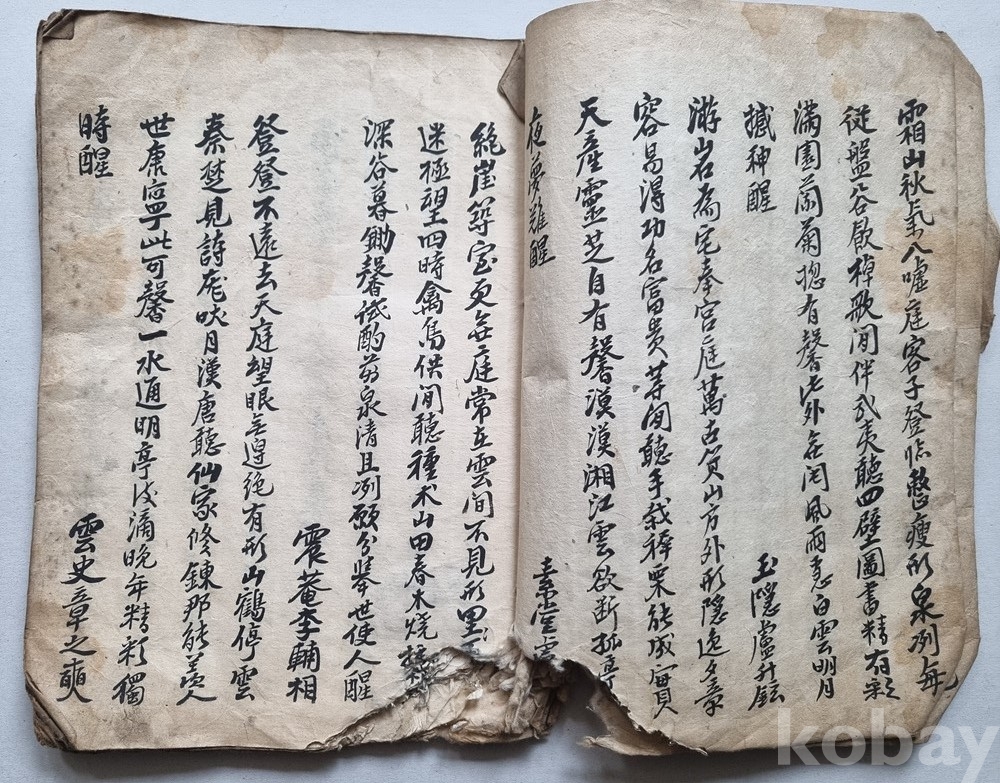 霜山秋氣入噓庭客子登臨憨瘦形泉冽每
從盤谷飮棹歌閒伴武夷聽四壁圖書精有彩
滿園蘭菊摠有馨此外無闻風雨意白雲明月
撼神醒
玉隱盧升鉉
游山名為宅奉宮庭萬古箕山方外形隱逸文章
容易得功名富貴等闻聽手栽稗栗能成實
天產靈芝自有馨漠漠湘江雲欲斷孤亭
夜夢難醒
絶崖築室更無庭常在雲間不見形
迷極望四時禽鳥供间聽種术山田春木燒
深谷暮鋤馨試酌前泉清且冽願分擧世使人醒
震菴李輔相
登登不遠去天庭望眼無邊絶有形山鶴停雲
秦楚見詩庬吠月漢唐聽仙家修鍊那能羡人
世康寧此可馨一水通明亭汝滴晩年精彩獨
時醒
雲史章之奭
kobay